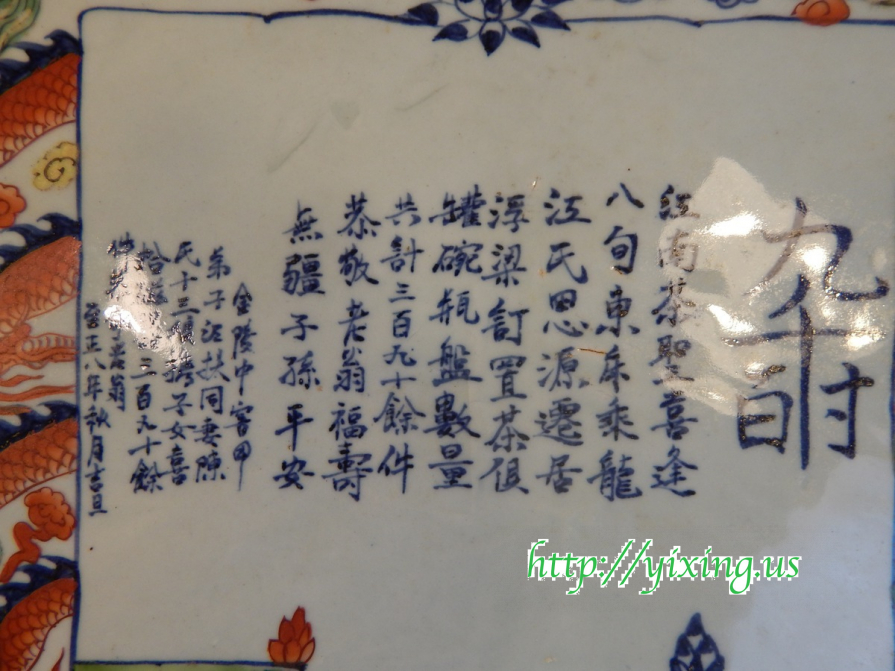 江南茶聖喜逢
八旬東床乘龍
江氏思源遷居
浮梁訂置茶俱
罐碗瓶盤數量
共計三百九十餘件
恭敬老翁福壽
無疆子孫平安
金陵中窖甲
弟子江扶同妻陳
氏十三子女喜
拾三百九十餘
件老翁
至正八年秋月吉旦
http://yixing.us